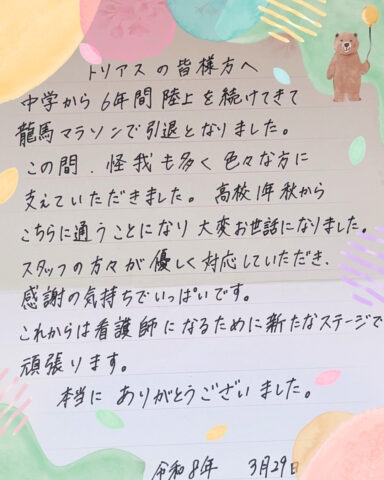 トリアスの皆様方へ
中学から6年間陸上を続けてきて
龍馬マラソンで引退となりました。
この間、怪我も多く色々な方に
支えていただきました。高校1年秋から
こちらに通うことになり大変お世話になりました。
スタッフの方々が優しく対応していただき、
感謝の気持ちでいっぱいです。
これからは看護師になるために新たなステージで
頑張ります。
本当にありがとうございました。
令和8年 3月29日